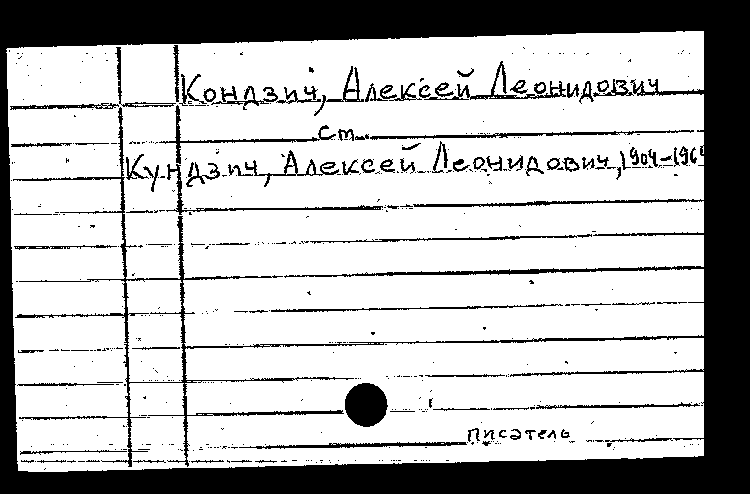 Кондзич, Алексей Леонидович
см.
Кундзич, Алексей Леонидович, 1904-1964
писатель